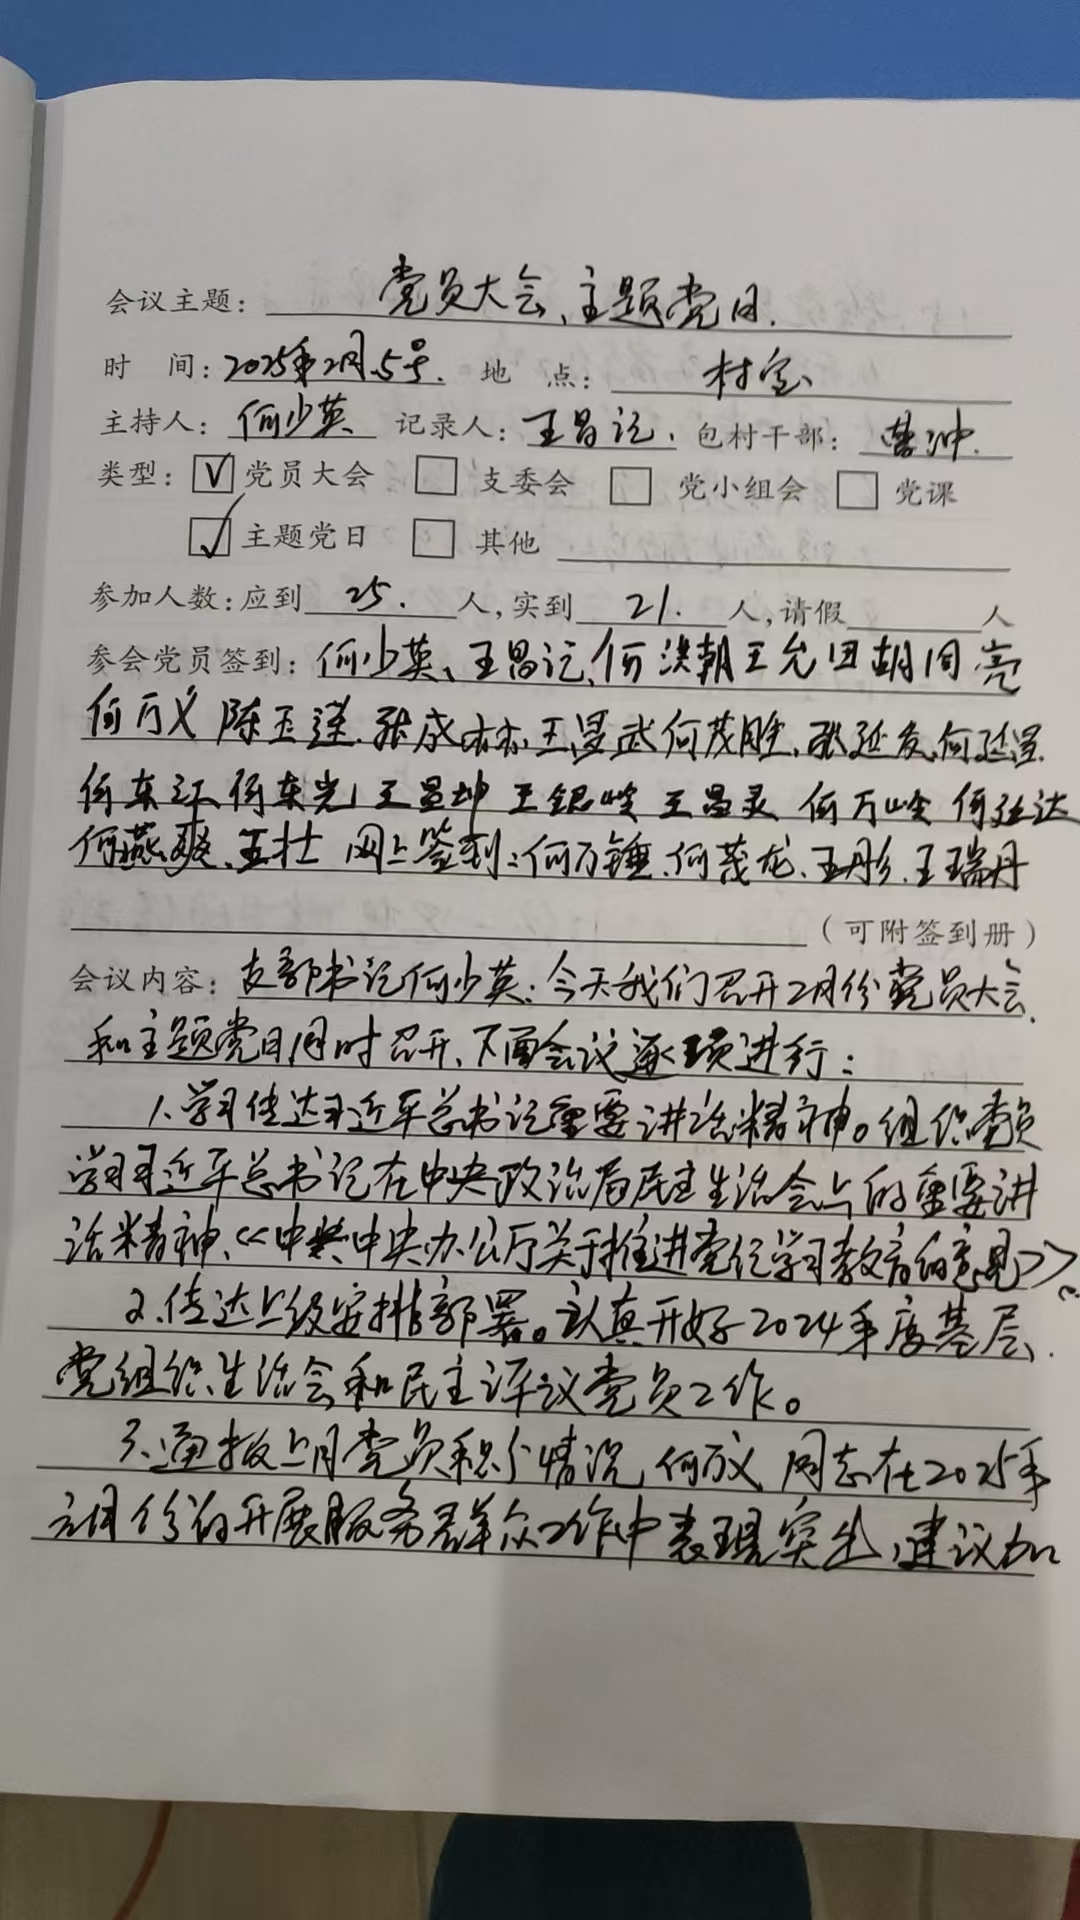 会议主题：党员大会、主题党日.
时 间：2025年2月5号. 地 点：村室
主持人：何少英 记录人：王昌记. 包村干部：冲.
类型：☑党员大会 □支委会 □党小组会 □党课
☑主题党日 □其他
参加人数：应到 25. 人，实到 21. 人，请假 人
参会党员签到：何少英、王昌记、何洪朝 王允田 胡同亮
何万义 陈玉莲. 张成林. 王昌武 何茂胜. 张延友. 何延昌.
何东江 何东光 王昌坤 王银岭 王昌灵 何万岭 何延达
何燕爽、王壮 网上签到：何万锤. 何茂龙、王彤. 王瑞丹
（可附签到册）
会议内容：支部书记何少英：今天我们召开2月份党员大会
和主题党日同时召开、下面会议逐项进行：
1.学习传达习近平总书记重要讲话精神。组织党员
学习习近平总书记在中央政治局民主生活会上的重要讲
话精神、《中共中央办公厅关于推进党纪学习教育的意见》。
2.传达上级安排部署。认真开好2024年度基层
党组织生活会和民主评议党员工作。
3.通报上月党员积分情况 何万义 同志在2025年
元月份的开展服务群众工作中表现突出，建议加